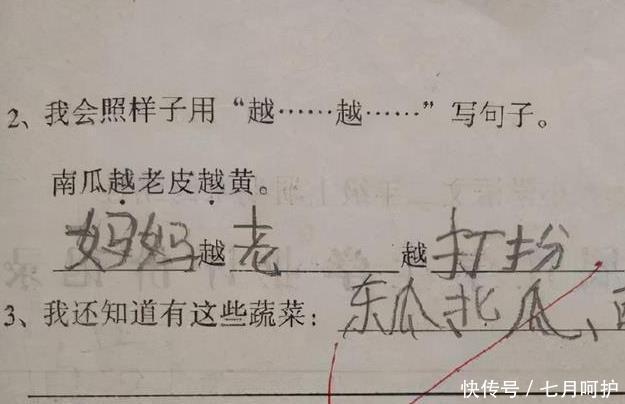 2、我会照样子用“越……越……”写句子。
南瓜越老皮越黄。
妈妈越老 越打扮
3、我还知道有这些蔬菜：东瓜、北瓜、
快传号／七月呵护